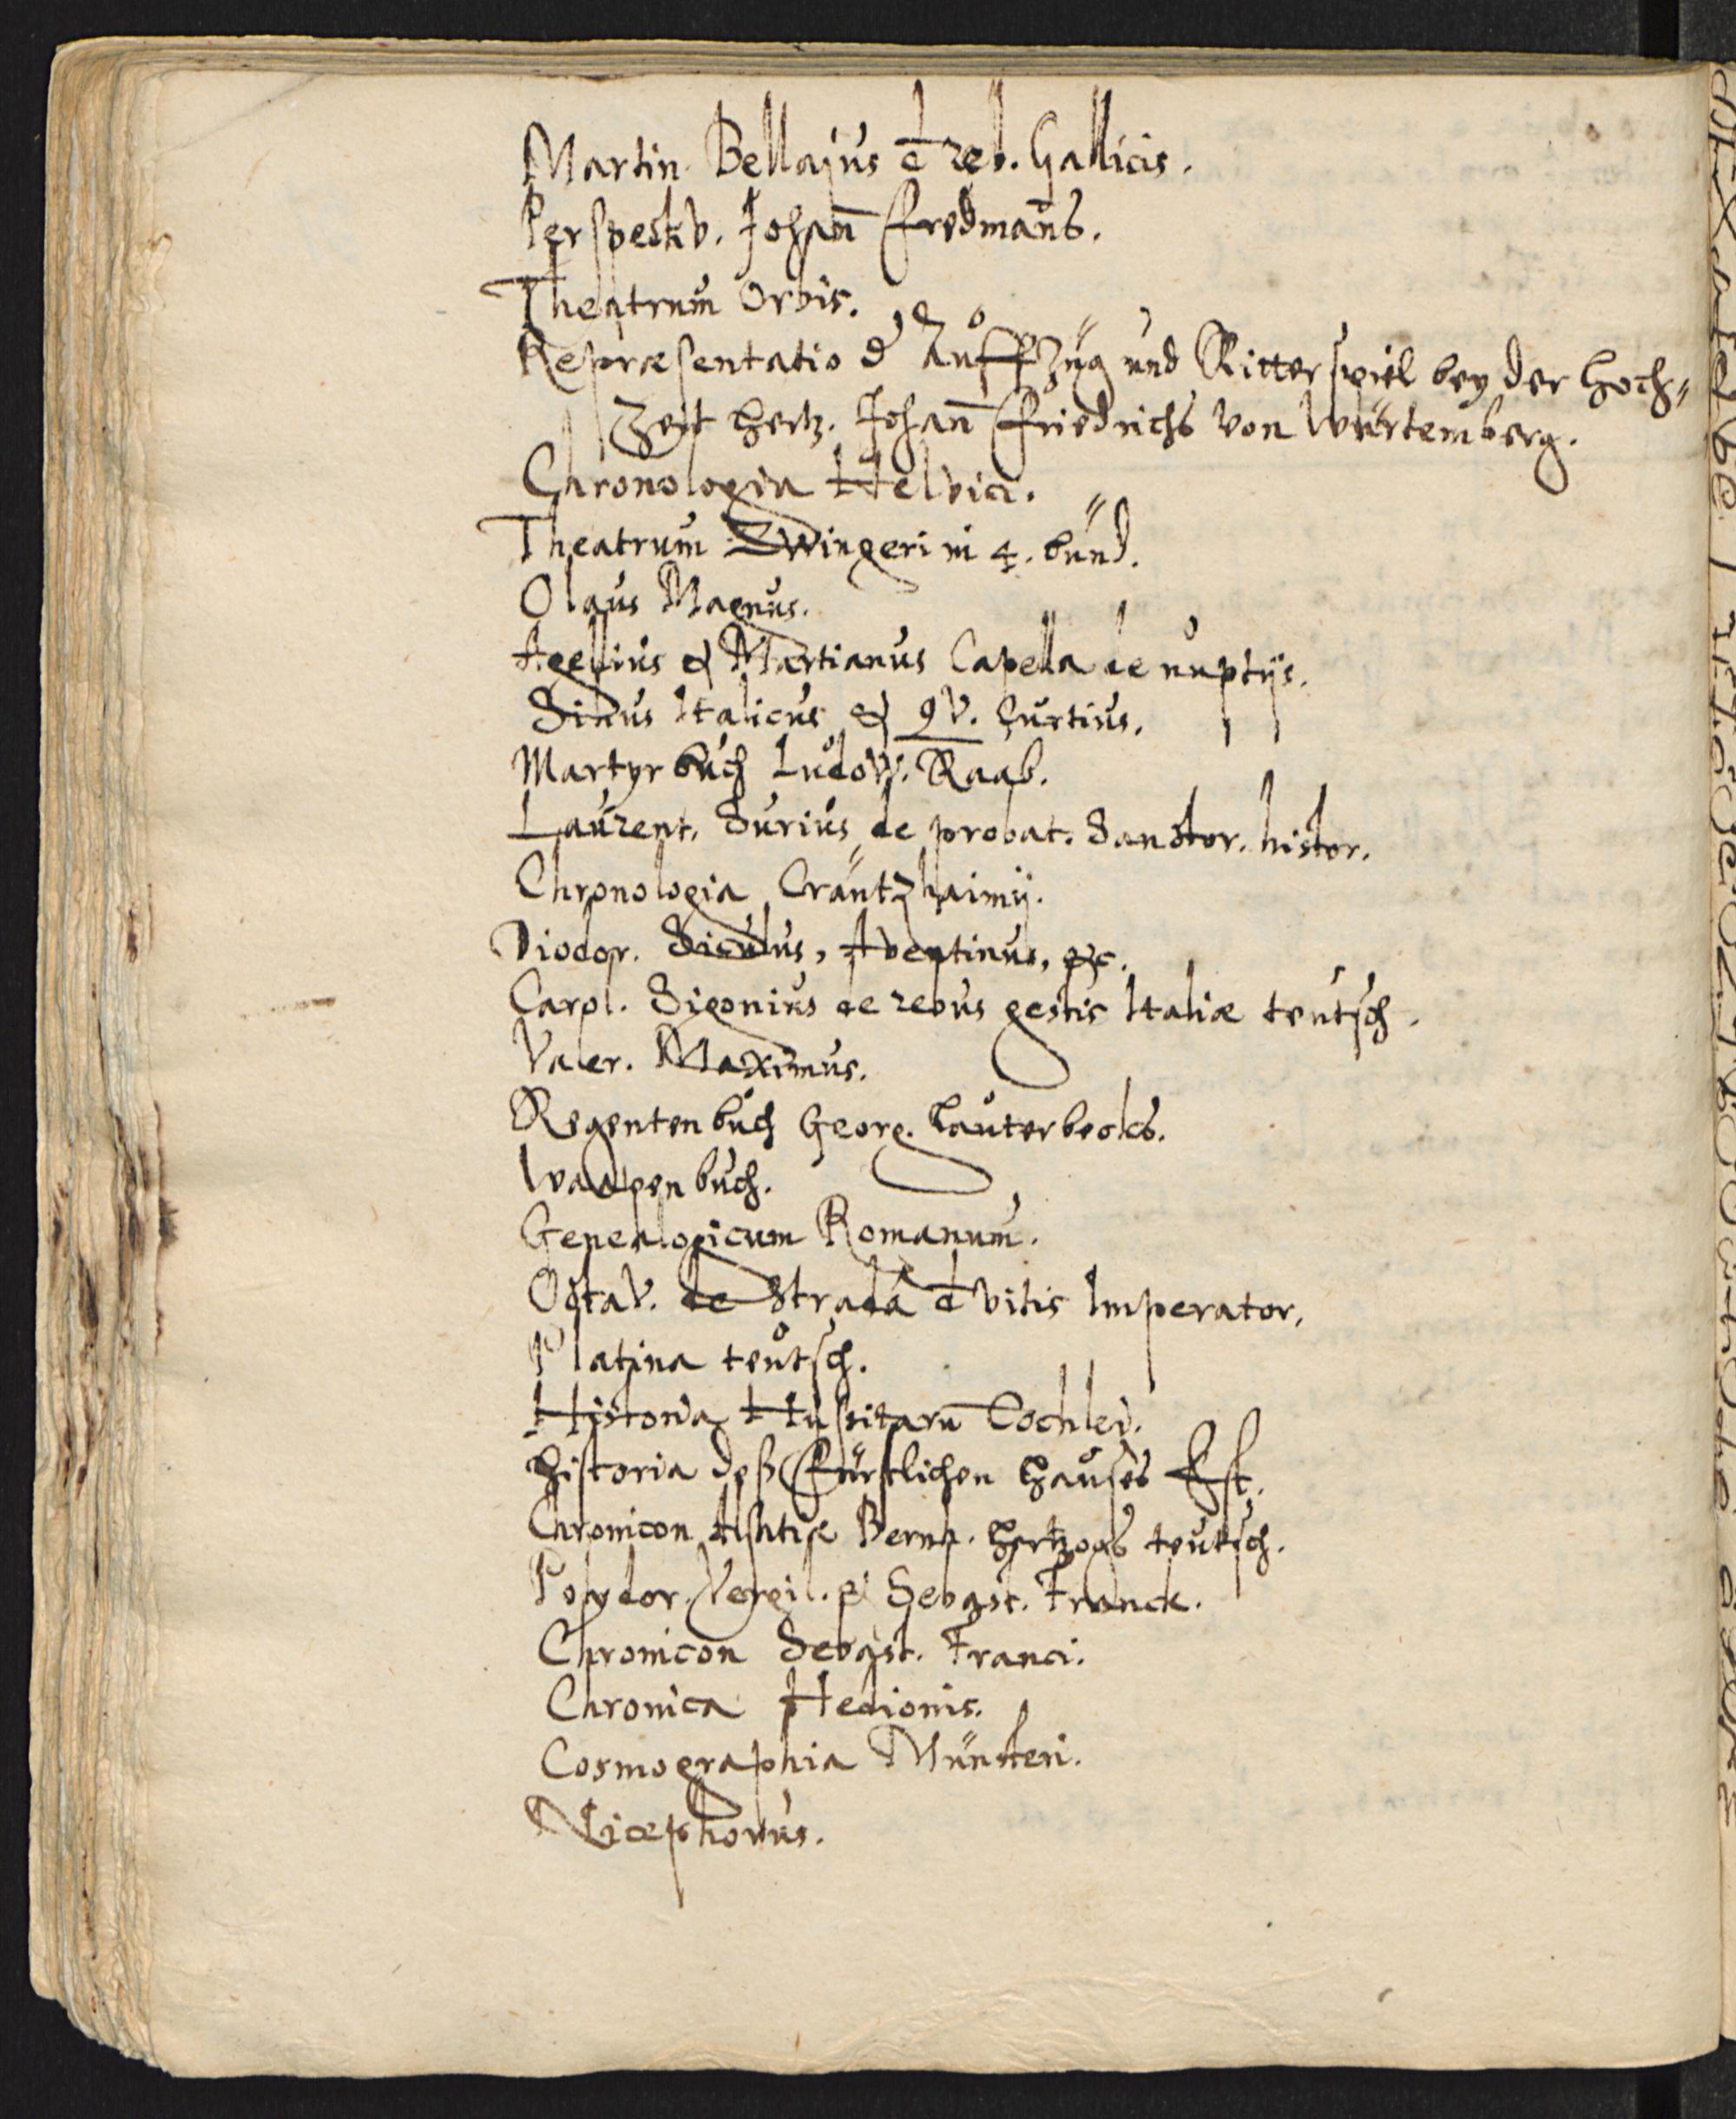 Martin. Bellajus de reb. Gallicis.
Perspectiv. Johan̄ Fredmans.
Theatrum Orbis.
Repræsentatio d' Auffzüg und Ritterspiel bey der Hoch⸗
Zeyt Hertz. Johan̄ Friedrichs von Würtemberg.
Chronologia Helvici.
Theatrum Zwingeri in 4. bünd.
Olaus Magnus.
Agellius & Martianus Capella de nuptijs.
Silius Italicus & QV. Curtius.
Martyrbuch Ludow. Raab.
Laurent. Surius de probat. Sanctor. histor.
Chronologia Cräntzhaimij.
Diodor. Siculus, Aventinus, &c.
Carol. Sigonius de rebus gestis Italiæ teutsch.
Valer. Maximus.
Regentenbuch Georg. Lauterbecks.
Wappenbuch.
Genealogicum Romanum.
Octav. de Strada de vitis Imperator.
Platina teutsch.
Historia Hussitarū Cochlei.
Historia deß Fürstlichen Hauses Est.
Chronicon Alsatiæ Bernh. Hertzogs teutsch.
Polydor. Vergil. Sebast. Franck.
Chronicon Sebast. Franci.
Chronica Hedionis.
Cosmographia Münsteri.
Nicephorus.